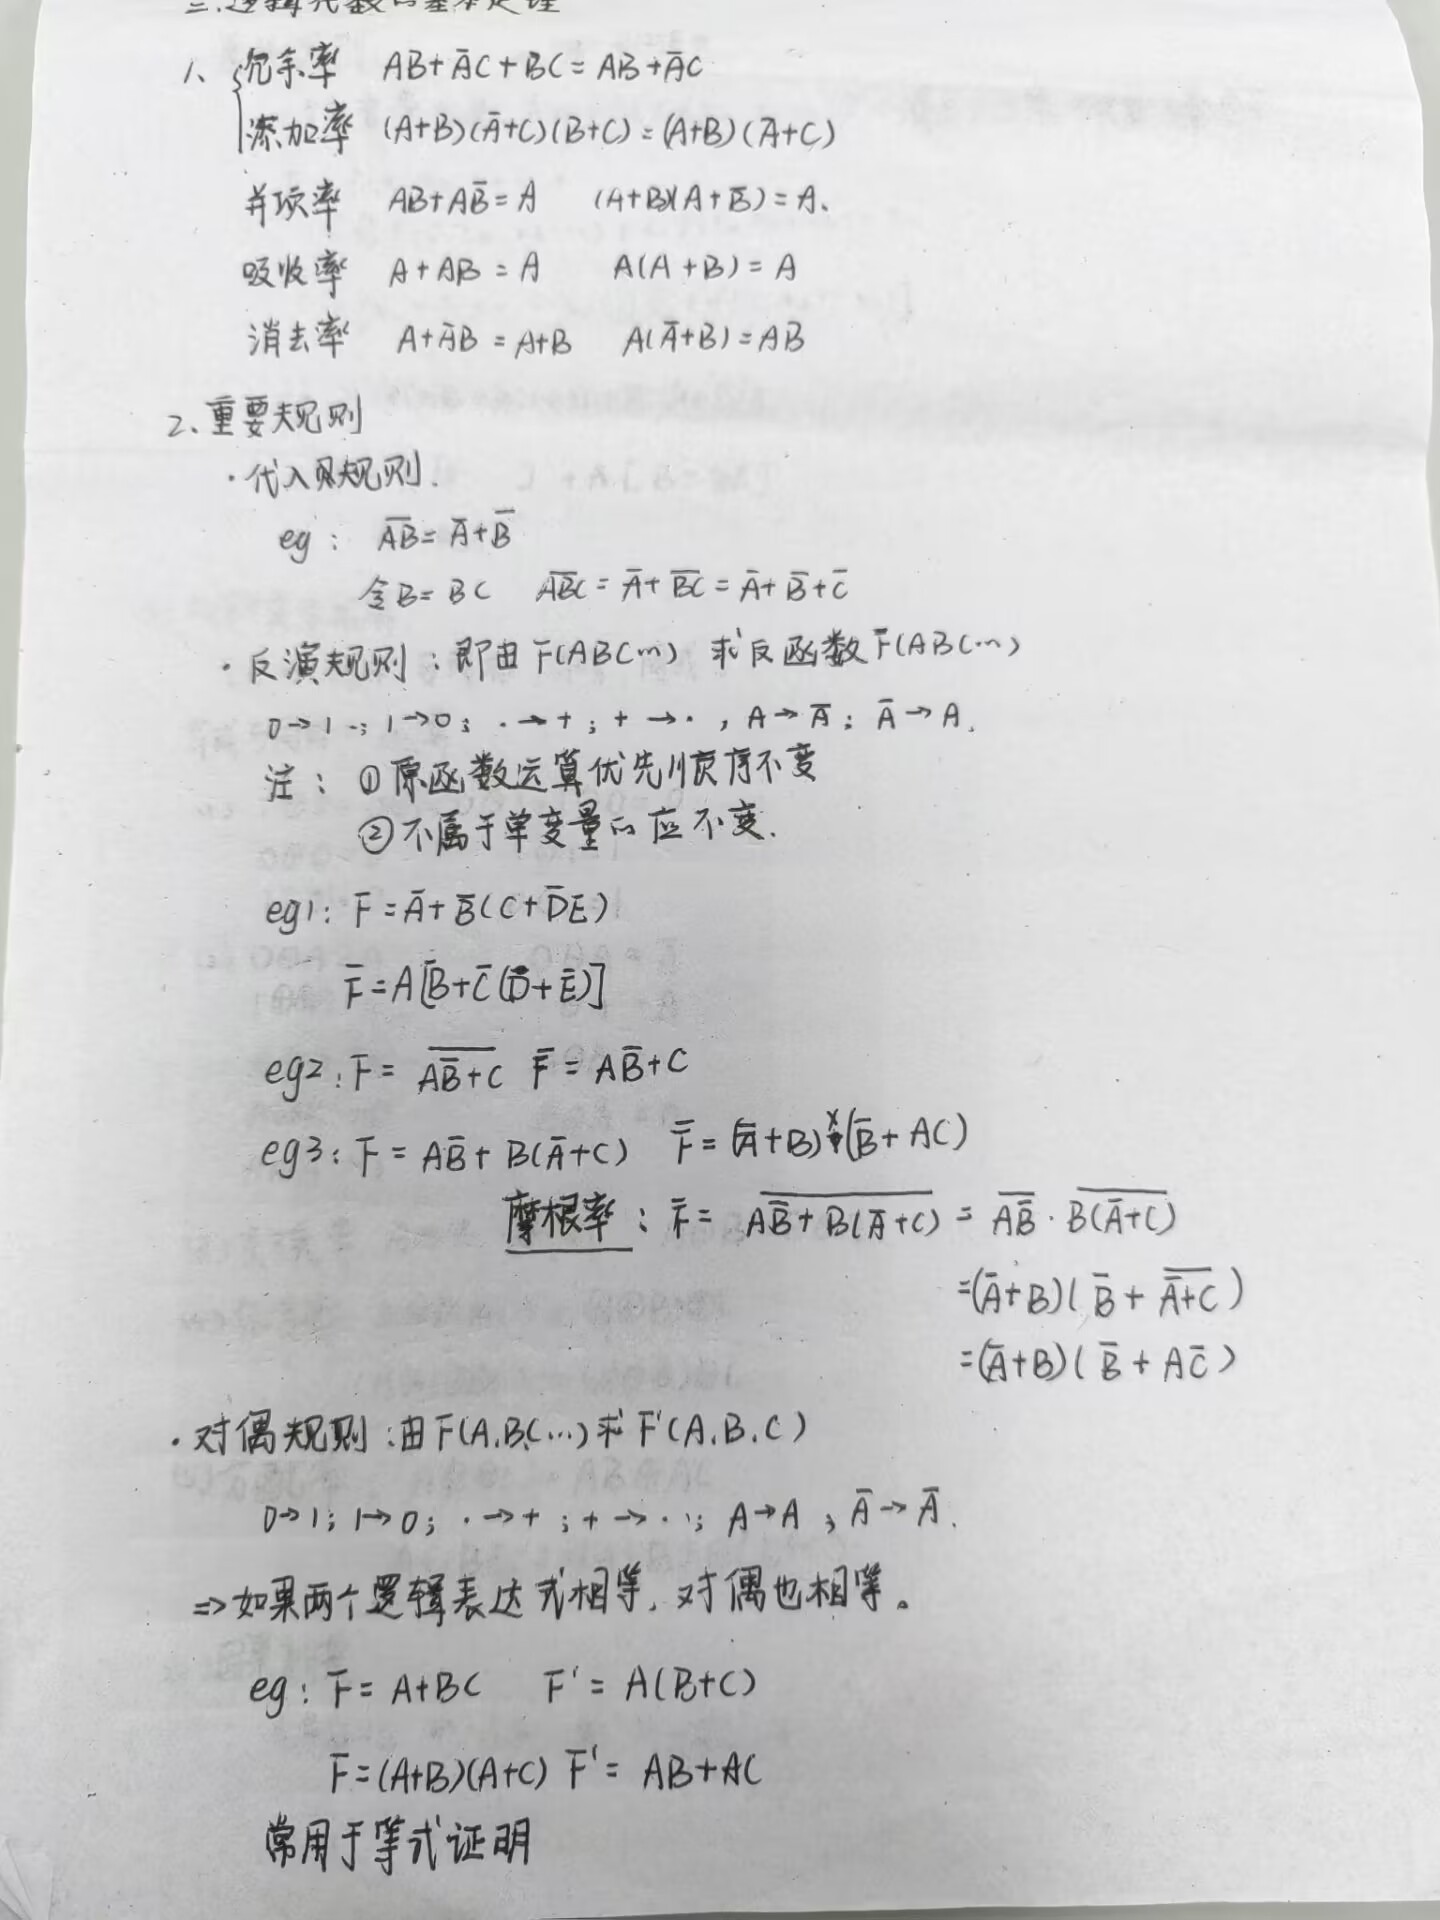 三.逻辑代数的基本定理
1、冗余率 AB+A̅C+BC=AB+A̅C
添加率 (A+B)(A̅+C)(B+C)=(A+B)(A̅+C)
并项率 AB+AB̅=A (A+B)(A+B̅)=A、
吸收率 A+AB=A A(A+B)=A
消去率 A+A̅B=A+B A(A̅+B)=AB
2、重要规则
·代入规则.
eg: A̅B̅=A̅+B̅
令B=BC A̅B̅C̅=A̅+B̅C̅=A̅+B̅+C̅
·反演规则:即由F(ABC…) 求反函数F̅(ABC…)
0→1.;1→0;·→+;+→·,A→A̅;A̅→A.
注: ①原函数运算优先顺序不变
②不属于单变量的应不变.
eg1: F=A̅+B̅(C+D̅E)
F̅=A[B+C̅(D+E̅)]
eg2: F=A̅B̅̅+̅C̅ F̅=AB̅+C
eg3: F=AB̅+B(A̅+C) F̅=(A̅+B)×(B̅+AC)
摩根率: F̅=A̅B̅̅+̅B̅(̅A̅̅+̅C̅)̅=A̅B̅̅·B̅(̅A̅̅+̅C̅)̅
=(A̅+B)(B̅+A̅̅+̅C̅)
=(A̅+B)(B̅+AC̅)
·对偶规则:由F(A.B.C…)求F'(A.B.C)
0→1;1→0;·→+;+→·;A→A;A̅→A̅.
⇒如果两个逻辑表达式相等,对偶也相等。
eg: F=A+BC F'=A(B+C)
F=(A+B)(A+C) F'=AB+AC
常用于等式证明